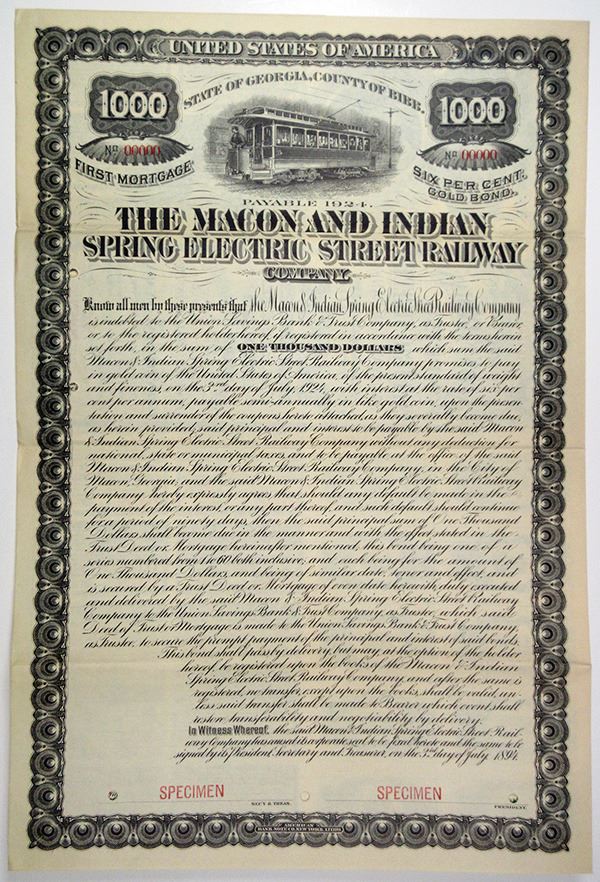 UNITED STATES OF AMERICA
STATE OF GEORGIA, COUNTY OF BIBB.
1000
1000
No 00000
No 00000
FIRST MORTGAGE
SIX PER CENT. GOLD BOND.
PAYABLE 1924.
THE MACON AND INDIAN
SPRING ELECTRIC STREET RAILWAY
COMPANY.
Know all men by these presents that the Macon & Indian Spring Electric Street Railway Company
is indebted to the Union Savings Bank & Trust Company, as Trustee, or Bearer,
or to the registered holder hereof, if registered in accordance with the terms herein
set forth, in the sum of ONE THOUSAND DOLLARS which sum the said
Macon & Indian Spring Electric Street Railway Company promises to pay
in gold coin of the United States of America, of the present standard of weight
and fineness, on the 3rd day of July, 1924, with interest at the rate of six per
cent per annum, payable semi-annually in like gold coin, upon the presen-
tation and surrender of the coupons hereto attached, as they severally become due,
as herein provided, said principal and interest to be payable by the said Macon
& Indian Spring Electric Street Railway Company without any deduction for
national, state or municipal taxes, and to be payable at the office of the said
Macon & Indian Spring Electric Street Railway Company, in the City of
Macon, Georgia, and the said Macon & Indian Spring Electric Street Railway
Company hereby expressly agrees that should any default be made in the
payment of the interest, or any part thereof, and such default should continue
for a period of ninety days, then the said principal sum of One Thousand
Dollars shall become due in the manner and with the effect stated in the
Trust Deed or Mortgage hereinafter mentioned, this bond being one of a
series numbered from 1 to 60 both inclusive, and each being for the amount of
One Thousand Dollars, and being of similar date, tenor and effect, and
is secured by a Trust Deed or Mortgage of even date herewith, duly executed
and delivered by the said Macon & Indian Spring Electric Street Railway
Company to the Union Savings Bank & Trust Company, as Trustee, which said
Deed of Trust or Mortgage is made to the Union Savings Bank & Trust Company,
as Trustee, to secure the prompt payment of the principal and interest of said bonds.
This bond shall pass by delivery, but may, at the option of the holder
hereof, be registered upon the books of the Macon & Indian
Spring Electric Street Railway Company, and after the same is
registered, no transfer, except upon the books, shall be valid, un-
less said transfer shall be made to Bearer which event shall
restore transferability and negotiability by delivery.
In Witness Whereof, the said Macon & Indian Spring Electric Street Rail-
way Company has caused its corporate seal to be fixed hereto and the same to be
signed by its President, Secretary and Treasurer, on the 3rd day of July, 1894.
SPECIMEN
SPECIMEN
SEC'Y & TREAS.
PRESIDENT.
AMERICAN
BANK NOTE CO. NEW YORK.